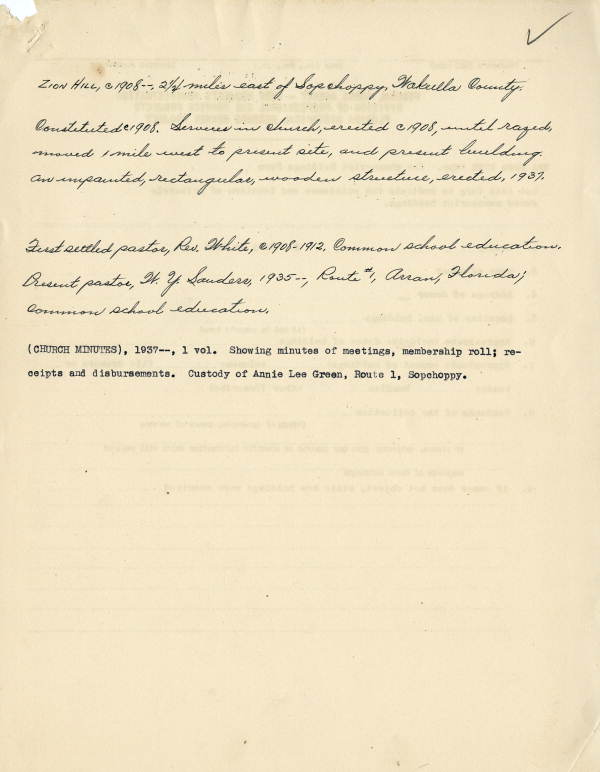 ZION HILL, c1908--, 2 1/4 miles east of Sopchoppy, Wakulla County.
Constituted c1908. Services in church, erected c1908, until razed,
moved 1 mile west to present site, and present building
an unpainted, rectangular, wooden structure, erected, 1937.
First settled pastor, Rev. White, c1908-1912. Common school education.
Present pastor, W. Y. Sanders, 1935--, Route #1, Arran, Florida;
common school education.
(CHURCH MINUTES), 1937--, 1 vol. Showing minutes of meetings, membership roll; re-
ceipts and disbursements. Custody of Annie Lee Green, Route 1, Sopchoppy.